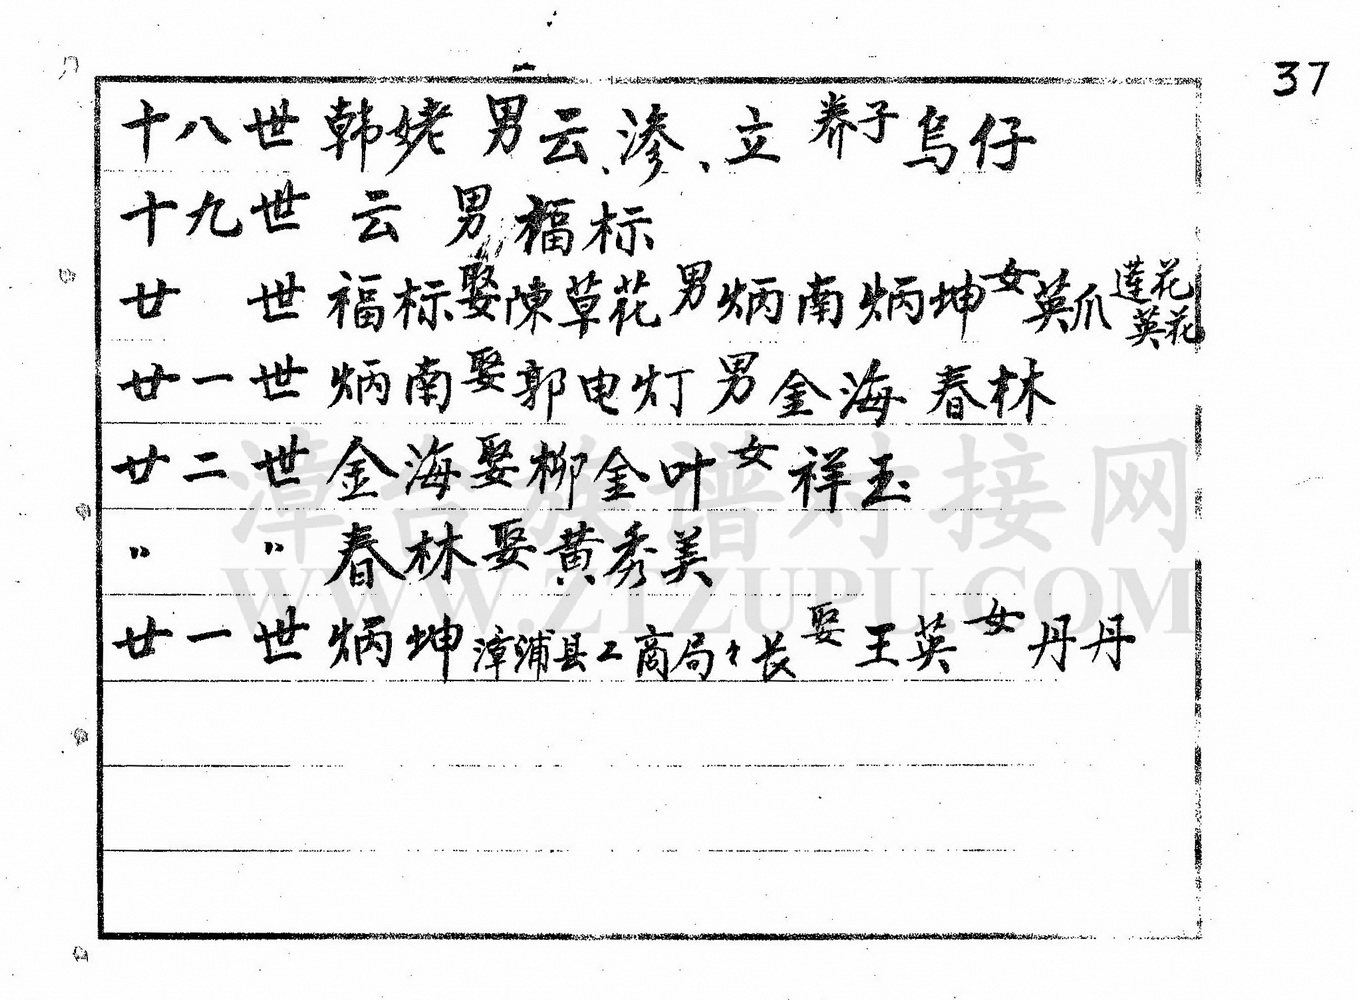 37
十八世 韩姥 男云、渗、立 养子乌仔
十九世 云 男福标
廿 世 福标娶陳草花男炳南炳坤女英爪莲花英花
廿一世 炳南娶郭电灯男金海春林
廿二世 金海娶柳金叶女祥玉
〃 〃 春林娶黄秀美
廿一世 炳坤漳浦县工商局长娶王英女丹丹
漳台族谱对接网
WWW.ZTZUPU.COM